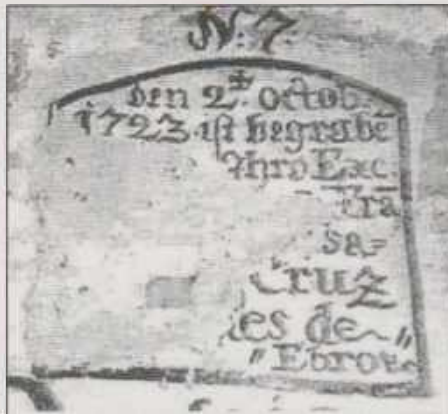 N: 7:
den 2t. octob.
1723 ist begrabē
Ihro Exc.
Frā
sa=
Cruz
es de
"Ebror